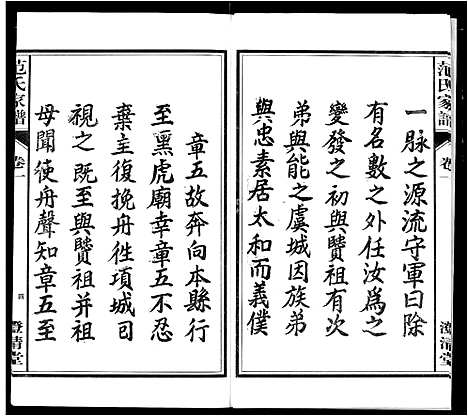 范氏家譜
卷一
澄清堂
一脉之源流守軍曰除
有名數之外任汝為之
變發之初與賛祖有次
弟與能之虞城因族弟
與忠素居太和而義僕
章五故奔向本縣行
至黑虎廟幸章五不忍
棄主復挽舟徃項城司
視之既至與賛祖并祖
母聞使舟聲知章五至
范氏家譜
卷一
四
澄清堂